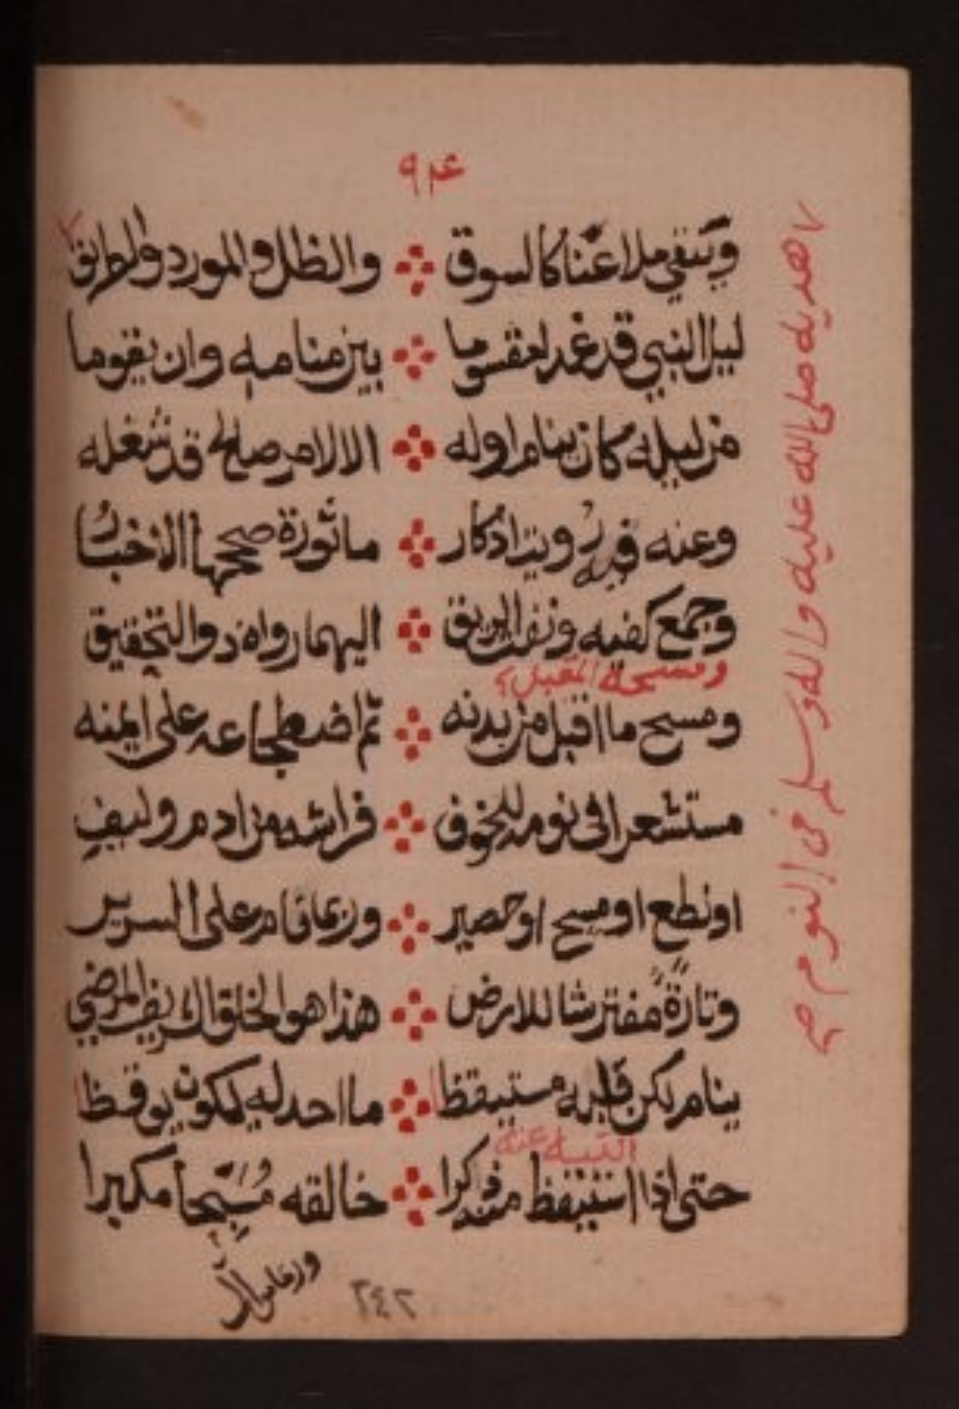 ٩٤
ويتقي ملاعنا كالسوق والظل والمورد والطرايق
ليل النبي قد غدا مقسوما بين منامه وان يقوما
من ليله كان ينام اوله الا لامر صالح قد شغله
وعنه فيه وردت اذكار ماثورة صححها الاخبار
وجمع كفيه ونفث الريق اليهما رواه ذو التحقيق
ومسحه المقبل
ومسح ما اقبل من بدنه ثم اضطجاعه على ايمنه
مستشعرا في نومه للخوف فراشه من ادم وليف
او نطع او مسح او حصير وربما قام على السرير
وتارة مفترشا للارض هذا هو الخلق الشريف المرضي
ينام لكن قلبه مستيقظا ما احد له يكون يوقظا
حتى اذا استيقظ منه ذكرا خالقه مسبحا مكبرا
٢٤٢
هديه صلى الله عليه واله وسلم في النوم